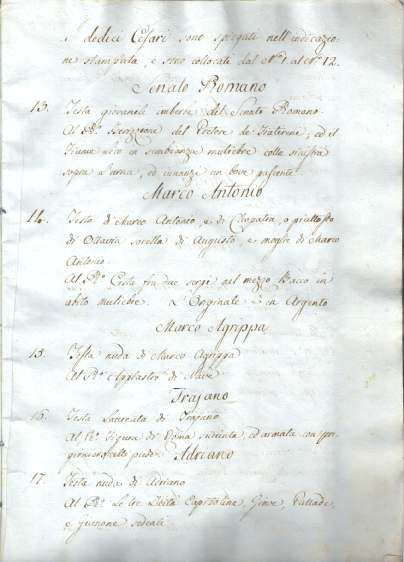 I dodici Cesari sono spiegati nell'indicazio-
ne stampata, e sono collocati dal N.o 1. al N.o 12.
Senato Romano
13. Testa giovanile imberbe del Senato Romano.
Al R.o Iscrizione del Pretore de' ed il
Fiume in sembianza muliebre colla sinistra
sopra l'urna, ed innanzi un bove pascente.
Marco Antonio
14. Testa di Marco Antonio, e di Cleopatra, o piuttosto
di Ottavia sorella di Augusto, e moglie di Marco
Antonio.
Al R.o Cista fra due serpi nel mezzo Bacco in
abito muliebre. L'Originale è in Argento
Marco Agrippa
15. Testa nuda di Marco Agrippa
Al R.o di Nave
Trajano
16. Testa Laureata di Trajano
Al R.o Figura di Roma sedente, ed armata con pri-
gioniero piede.
Adriano
17. Testa nuda di Adriano
Al R.o Le tre Deità Capitoline, Giove, Pallade,
e Giunone sedenti.